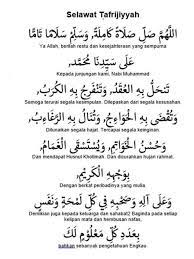 Selawat Tafrijiyyah
اللَّهُمَّ صَلِّ صَلَاةً كَامِلَةً، وَسَلِّمْ سَلَامًا تَامًّا
Ya Allah, berilah restu dan kesejahteraan yang sempurna
عَلَى سَيِّدِنَا مُحَمَّدٍ،
Kepada junjungan kami, Nabi Muhammad
تَنْحَلُّ بِهِ الْعُقَدُ، وَتَنْفَرِجُ بِهِ الْكُرَبُ،
Semoga terurai segala kesimpulan. Dilepaskan dari segala kesusahan.
وَتُقْضَى بِهِ الْحَوَائِجُ، وَتُنَالُ بِهِ الرَّغَائِبُ،
Ditunaikan segala hajat. Tercapai segala keinginan.
وَحُسْنُ الْخَوَاتِيْمِ، وَيُسْتَسْقَى الْغَمَامُ
Dan mendapat Hesnol Khotimah. Dan dicurahkan hujan rahmat.
بِوَجْهِهِ الْكَرِيْمِ
Dengan berkat peribadinya yang mulia
وَعَلَى آلِهِ وَصَحْبِهِ فِي كُلِّ لَمْحَةٍ وَنَفَسٍ
Demikian juga kepada keluarga dan sahabat2 Baginda pada setiap
kelipan mata dan hembusan nafas
بِعَدَدِ كُلِّ مَعْلُوْمٍ لَكَ
bahkan sebanyak pengetahuan Engkau